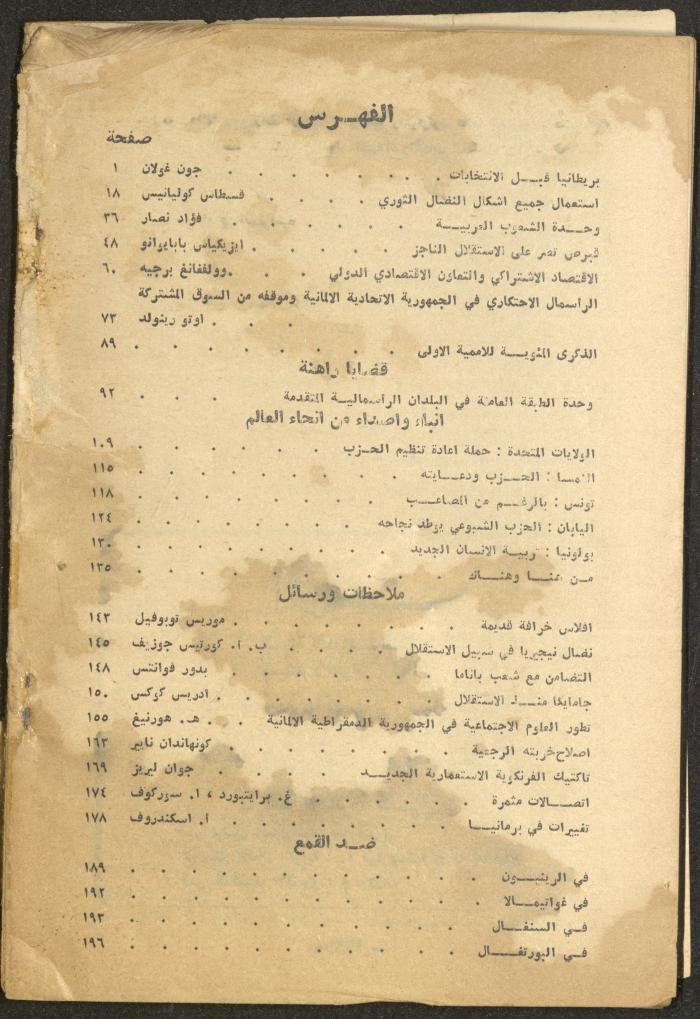 الفهـرس
صفحة
بريطانيا قبـــل الانتخابات . . . . . . . جون غولان ١
استعمال جميع اشكال النضال الثوري . . . . قسطاس كوليانيس ١٨
وحـــدة الشعوب العربيـــة . . . . . . فؤاد نصار ٣٦
قبرص تصر على الاستقلال الناجز . . . . . ايزيكياس بابايوانو ٤٨
الاقتصاد الاشتراكي والتعاون الاقتصادي الدولي . . . وولفغانغ برجيه ٦٠
الراسمال الاحتكاري في الجمهورية الاتحادية الالمانية وموقفه من السوق المشتركة
. . . . اوتو رينولد ٧٣
الذكرى المئويـــة للاممية الاولى . . . . . . . . ٨٩
قضايا راهنة
وحدة الطبقة العاملة في البلدان الراسماليـــة المتقدمة . . . ٩٢
انباء واصداء من انحاء العالم
الولايات المتحدة : حملة اعادة تنظيم الحـزب . . . . . . ١٠٩
النمسا : الحـــزب ودعـــايته . . . . . . . . ١١٥
تونس : بالرغـــم من المصاعـــب . . . . . . . . ١١٨
اليابان : الحزب الشيوعي يوطد نجاحه . . . . . . . ١٢٤
بولونيا : تربيـــة الانسان الجديد . . . . . . . . ١٣٠
مـن هنـــا وهنـــاك . . . . . . . . . ١٣٥
ملاحظات ورسائل
افلاس خرافة قديمة . . . . . . . موريس توبوفيل ١٤٣
نضال نيجيريا في سبيل الاستقلال . . . . ب. أ. كورتيس جوزيف ١٤٥
التضامن مع شعب باناما . . . . . . بدور فوانتس ١٤٨
جامايكا منـــذ الاستقلال . . . . . . . ادريس كوكس ١٥٠
تطور العلوم الاجتماعية في الجمهورية الدمقراطية الالمانية . . هـ. هورنيغ ١٥٥
اصلاح خربته الرجعية . . . . . . . كونهاندان نايير ١٦٣
تاكتيك الفرنكوية الاستعمارية الجديـــد . . . . . جوان ليريز ١٦٩
اتصـــالات مثمرة . . . . . غ. برايتبورد ، ا. سوركوف ١٧٤
تغييرات في برمانيـــا . . . . . . . أ. اسكندروف ١٧٨
ضـــد القمع
في الرينيـــون . . . . . . . . . . ١٨٩
في غواتيمـــالا . . . . . . . . . . ١٩٢
فـي السنغـــال . . . . . . . . . . ١٩٣
فـي البورتغـــال . . . . . . . . . . ١٩٦